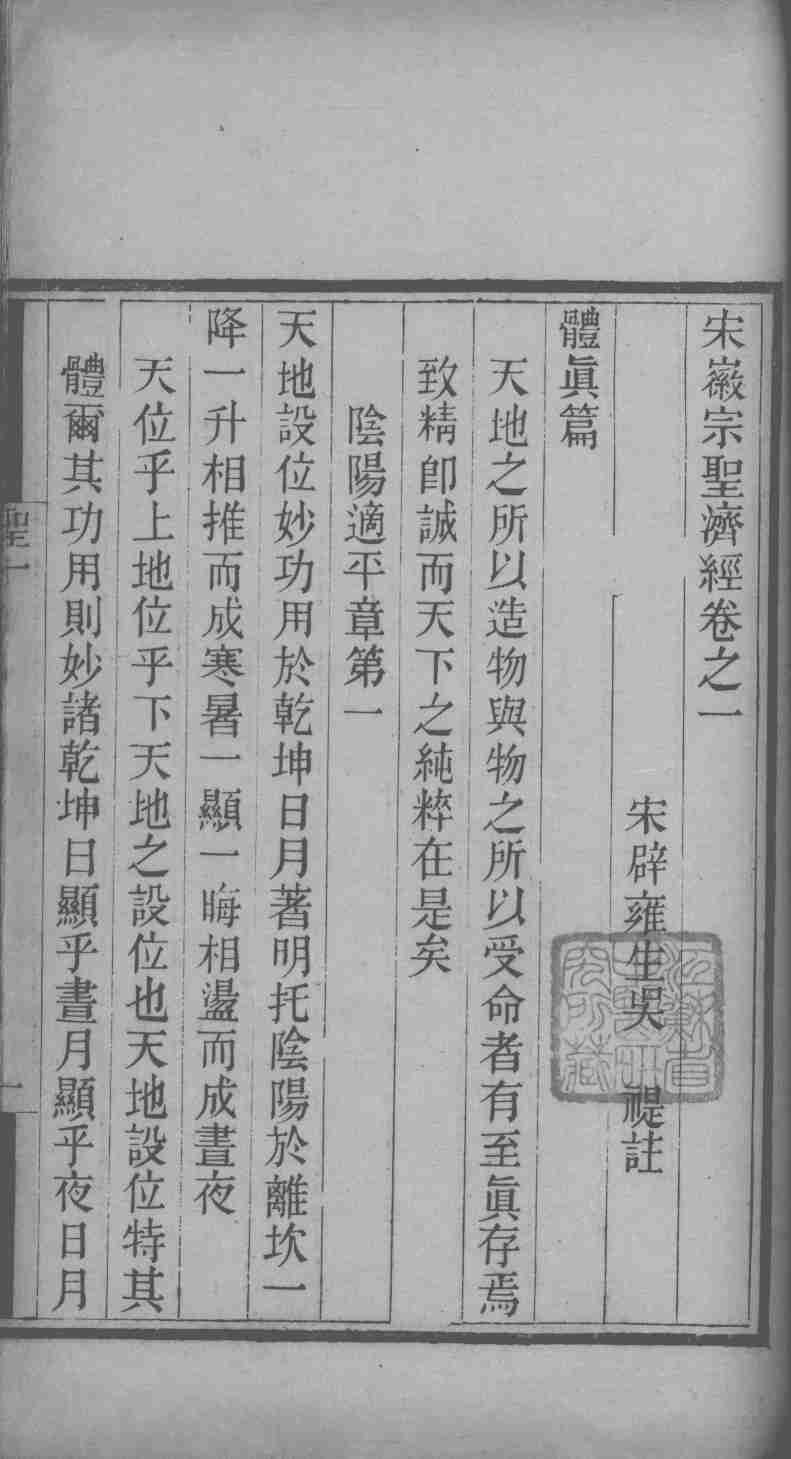 宋徽宗聖濟經卷之一
宋辟雍生吳　禔註
體眞篇
天地之所以造物與物之所以受命者有至眞存焉
致精卽誠而天下之純粹在是矣
陰陽適平章第一
天地設位妙功用於乾坤日月著明托陰陽於離坎一
降一升相推而成寒暑一顯一晦相盪而成晝夜
天位乎上地位乎下天地之設位也天地設位特其
體爾其功用則妙諸乾坤日顯乎晝月顯乎夜日月
聖一
一